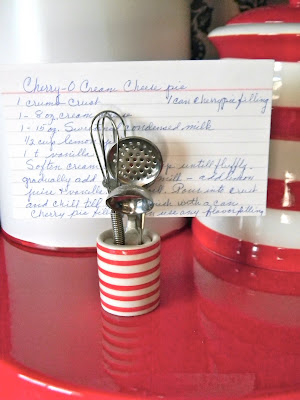 Cherry-O Cream Cheese pie
1 crumb crust 1 can Cherry pie filling
1 - 8 oz cream
1 - 15 oz. Swee condensed milk
1/2 cup lemon
1 t. vanilla
Soften cream untill fluffy
gradually add milk - add lemon
juice & vanilla Pour into crust
and chill till with a can
Cherry pie fill use any flavor filling